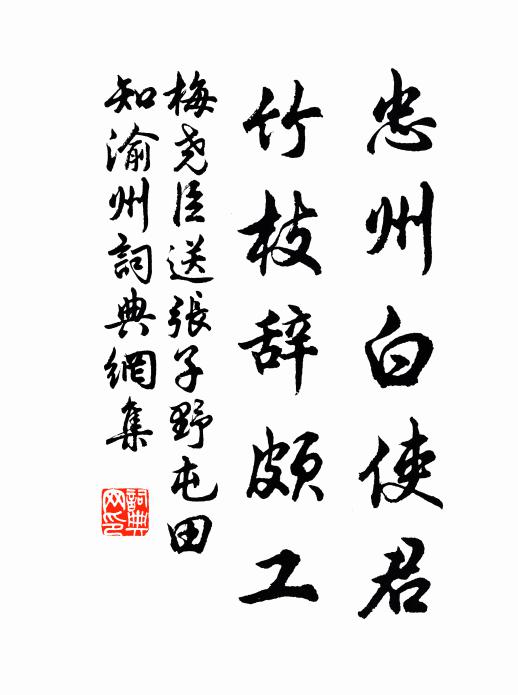 忠州白使君
竹枝辞颇工
梅尧臣送張子野屯田
知渝州詞典網集
詞典網印